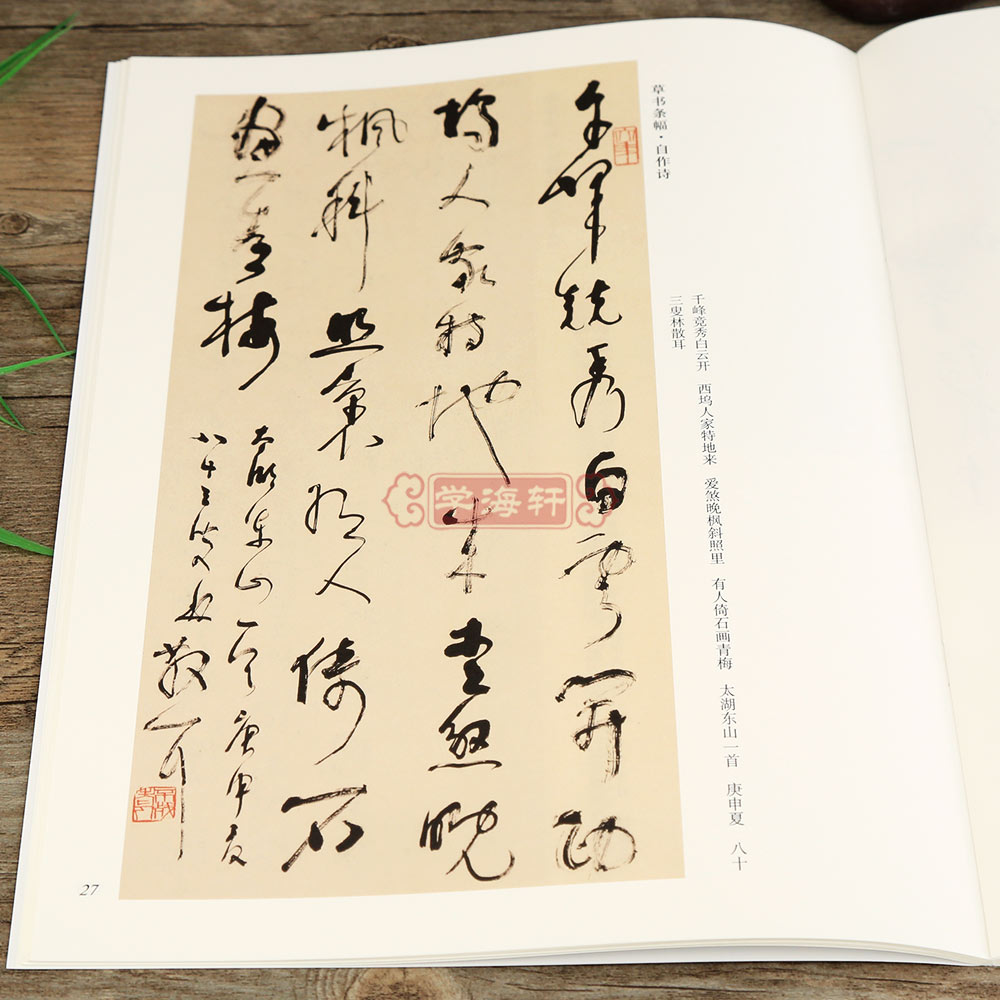 草书条幅·自作诗
千峰竞秀白云开 西坞人家特地来 爱煞晚枫斜照里 有人倚石画青梅 太湖东山一首 庚申夏 八十
三叟林散耳
千峰競秀白雲開西
塢人家特地来愛煞晚
楓斜照裏有人倚石
畫青梅
太湖东山一首庚申夏
八十三叟林散耳
学海轩
27